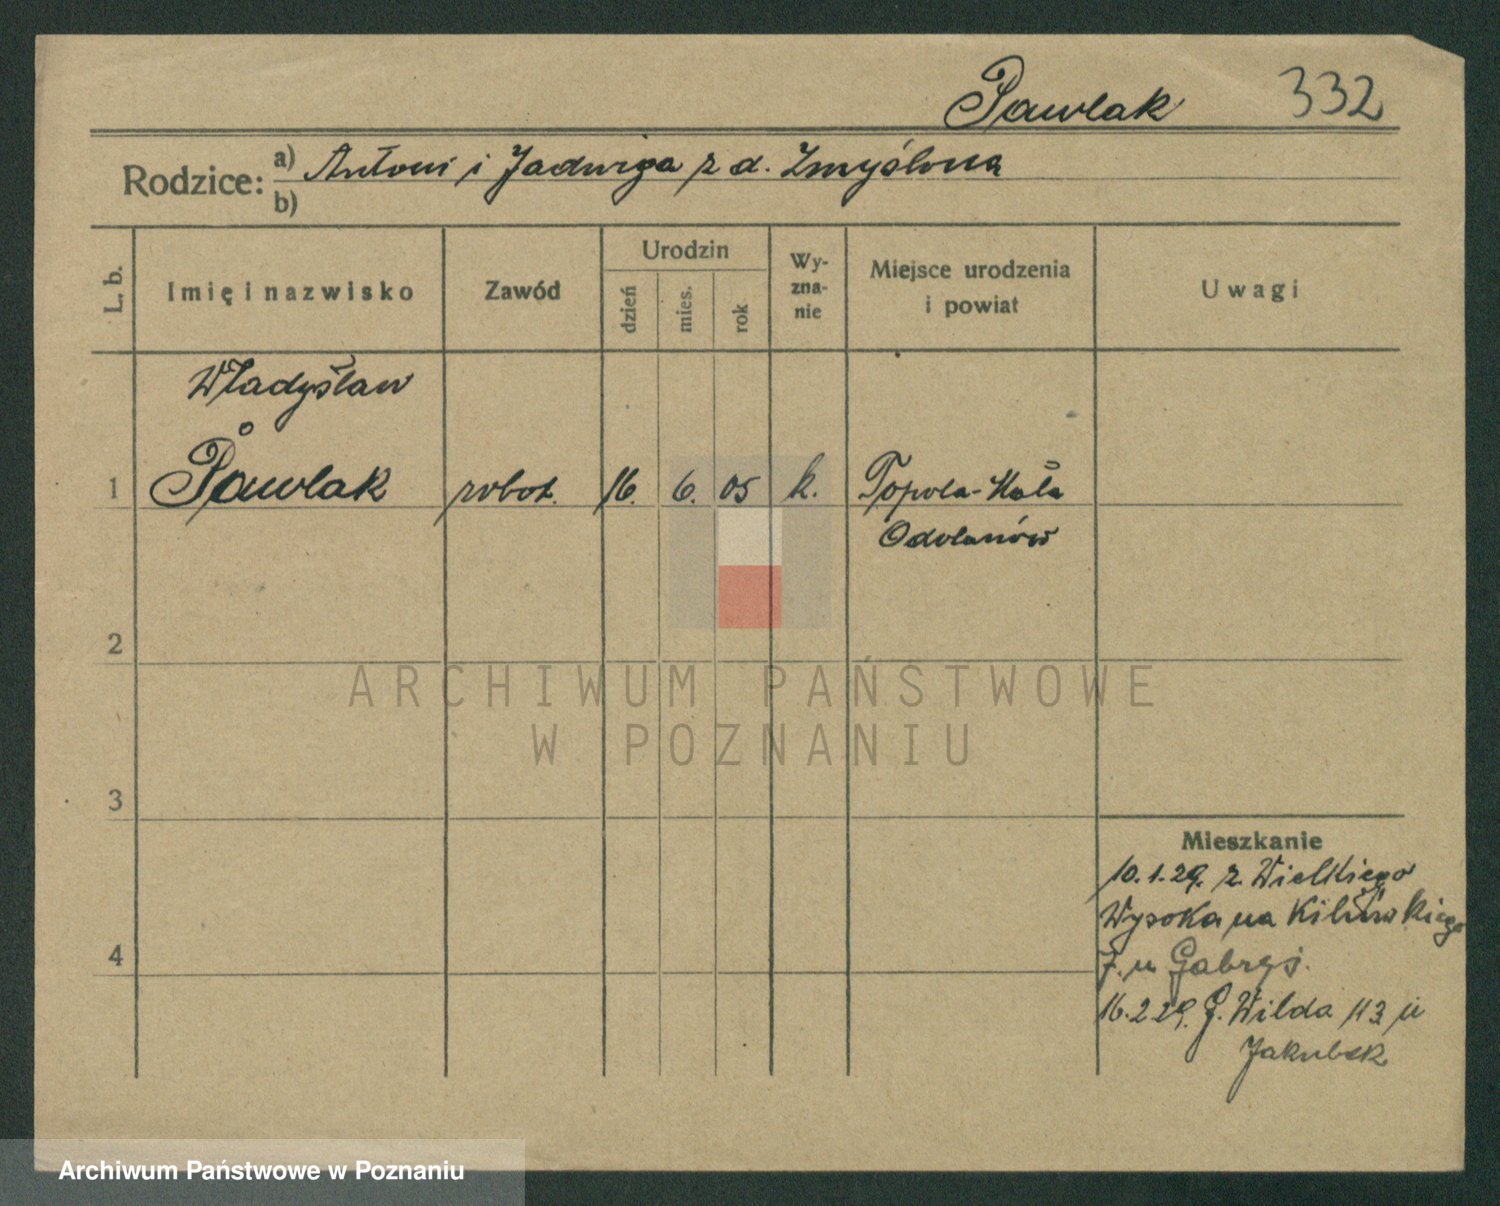 Pawlak 332
Rodzice: a) Antoni i Jadwiga z d. Zmyślona
b)
L. b. Imię i nazwisko Zawód Urodzin dzień mies. rok Wyznanie Miejsce urodzenia i powiat Uwagi
Władysław
1 Pawlak robot. 16. 6. 05 k. Topola-Mała
Odolanów
2
ARCHIWUM PAŃSTWOWE
W POZNANIU
3
Mieszkanie
10.1.29. z Wielkiego
Wysoka na Kilińskiego
4
7. u Gabryś.
16.2.29. G. Wilda 113 u
Jakubek
Archiwum Państwowe w Poznaniu